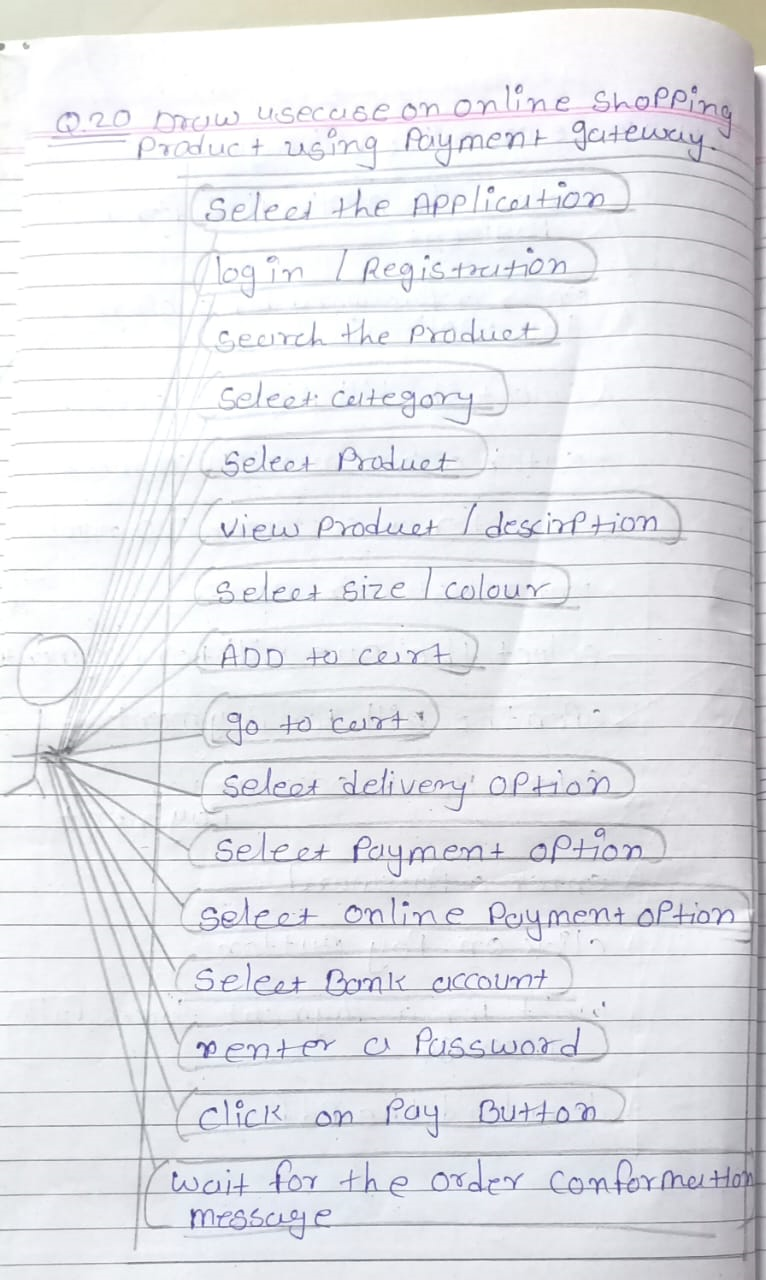 Q.20 Draw usecase on online Shopping
Product using Payment gateway.
Select the Application
log in / Registration
Search the Product
Select category
Select Product
View Product / descirption
Select size / colour
ADD to cart
go to cart
Select delivery option
Select Payment option
Select online Payment option
Select Bank account
enter a Password
Click on Pay Button
wait for the order conformation
message